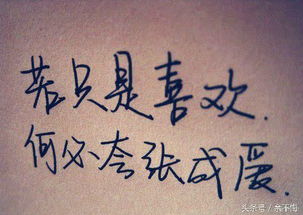 若只是喜欢.
何必夸张成爱.
头条号/亲不悔